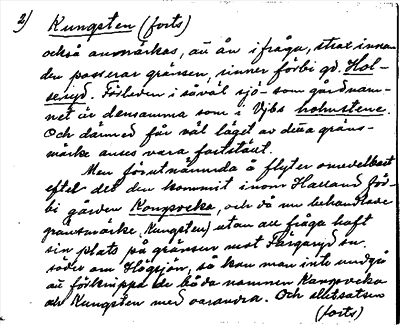 2) Kungsten (forts)
också anmärkas, att ån i fråga, strax innan
den passerar gränsen, rinner förbi gd. Hol-
seryd. Förleden i såväl sjö- som gårdsnam-
net är densamma som i Vjbs holmstene.
Och därmed får väl läget av detta gräns-
märke anses vara fastställt.
Men förutnämnda å flyter omedelbart
efter det den kommit inom Halland för-
bi gården Kongsvecka, och då nu behandlade
gränsmärke (Kungsten) utan all fråga haft
sin plats på gränsen mot Färgaryd sn.
söder om Högsjön, så kan man inte undgå
att förknippa de båda namnen Kongsvecka
och Kungsten med varandra. Och slutsatsen
(forts)